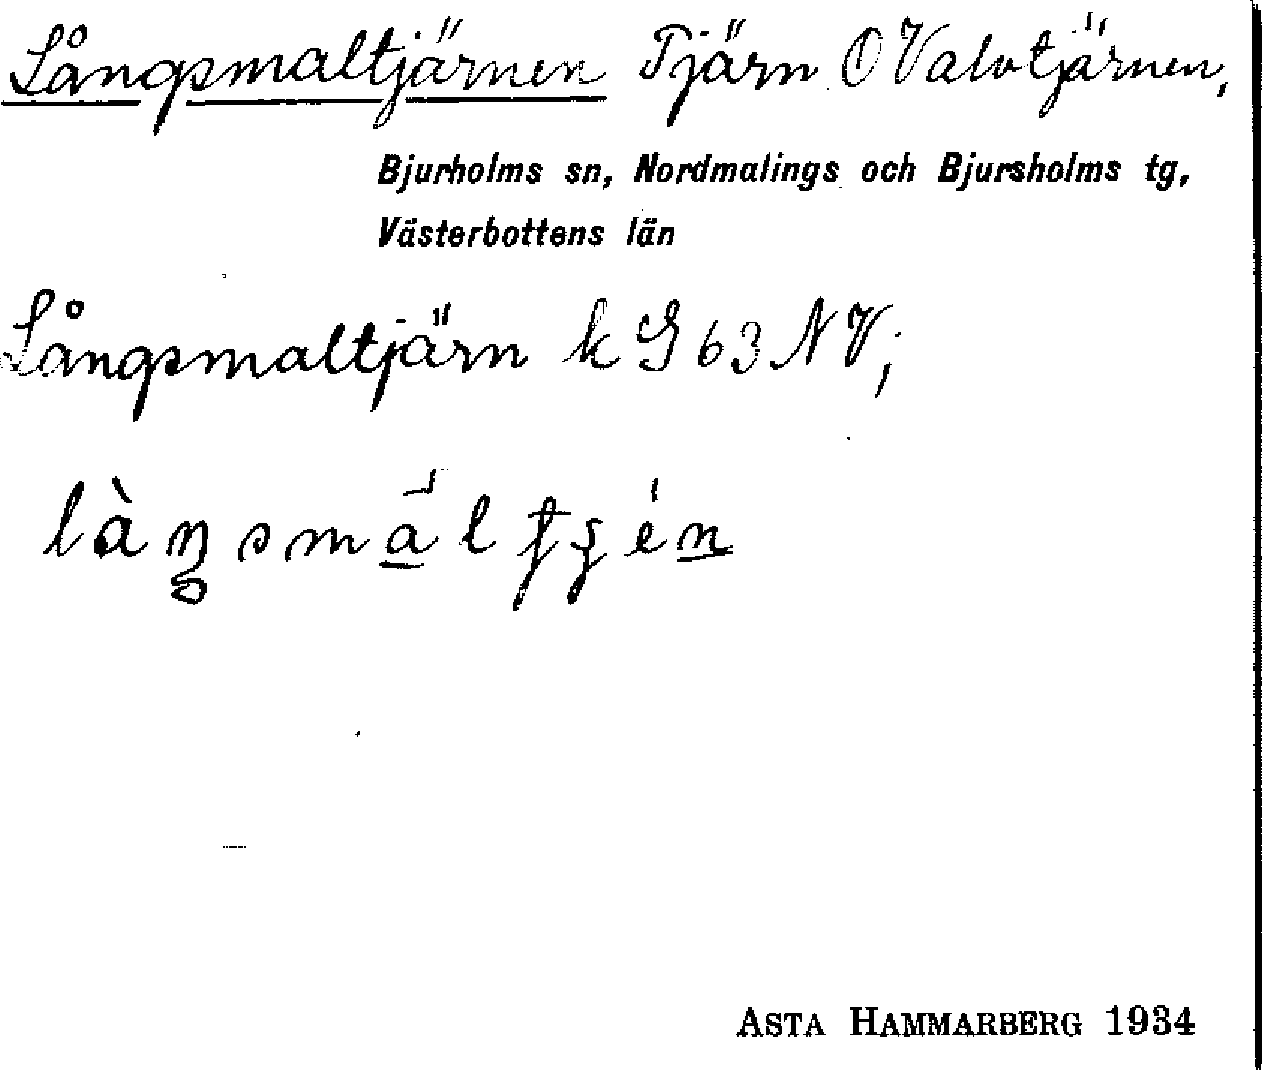 Långsmaltjärnen Tjärn O Valvtjärnen,
Bjurholms sn, Nordmalings och Bjursholms tg,
Västerbottens län
Långsmaltjärn k G 63 NV;
ASTA HAMMARBERG 1934